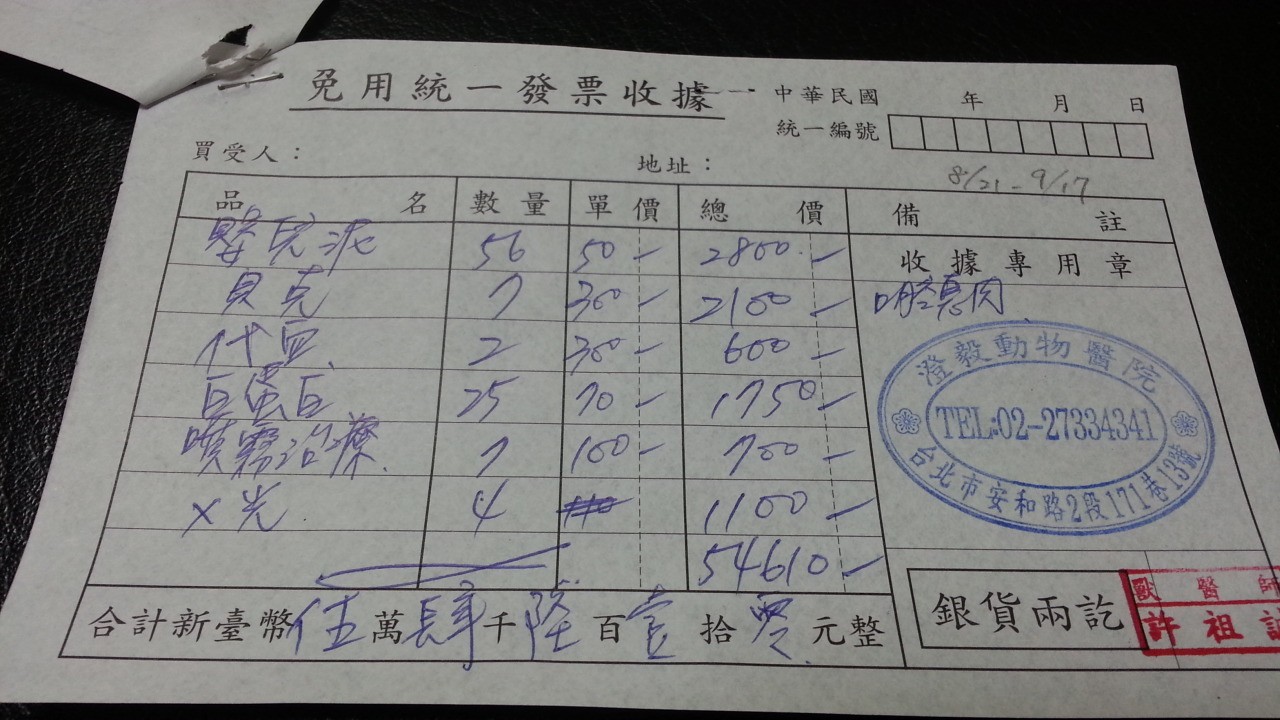 免用統一發票收據
中華民國 年 月 日
統一編號
買受人：
地址：
8/21 - 9/17
品名 數量 單價 總價 備註
嬰兒泥 56 50 - 2800 -
收據專用章
貝克 7 300 - 2100 -
口腔息肉
代血 2 300 - 600 -
白蛋白 25 70 - 1750 -
噴霧治療 7 100 - 700 -
X光 4 1100 -
54610 -
澄毅動物醫院
TEL:02-27334341
台北市安和路2段171巷13號
合計新臺幣伍萬肆千陸百壹拾零元整
銀貨兩訖
獸醫師
許祖誠